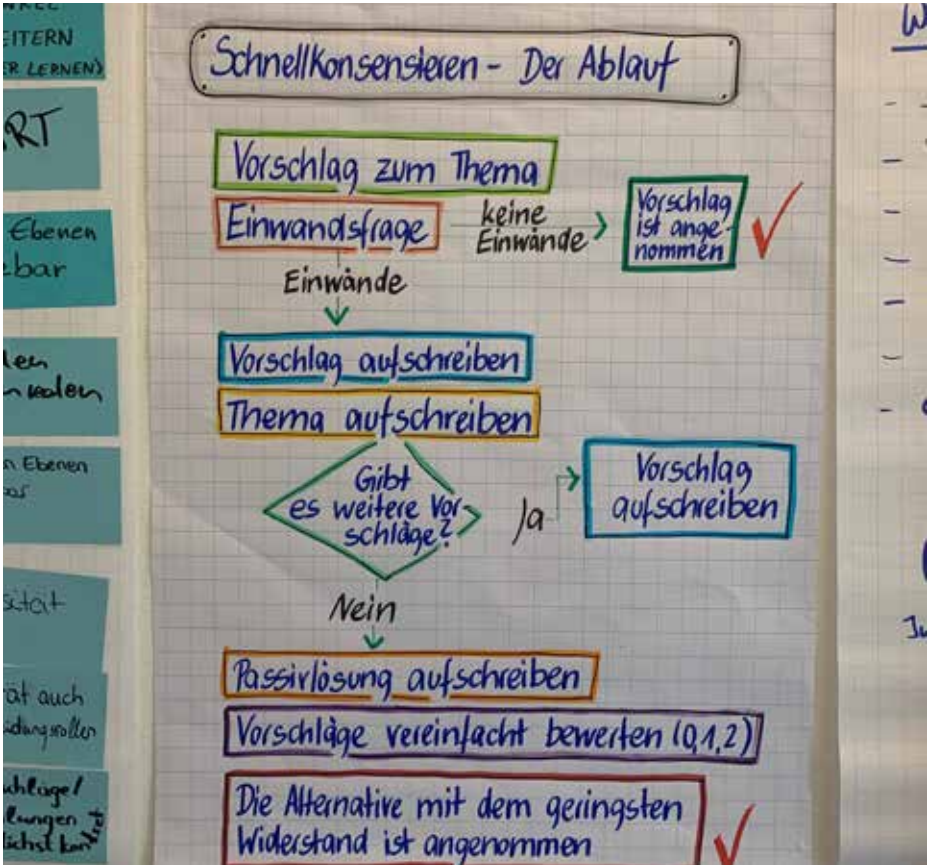 EITERN
ER LERNEN)
Ebenen
Schnellkonsensieren - Der Ablauf
Vorschlag zum Thema
Einwandsfrage
keine
Einwände
Vorschlag
ist ange-
nommen
Einwände
Vorschlag aufschreiben
Thema aufschreiben
Gibt
es weitere Vor-
schläge?
Ja
Vorschlag
aufschreiben
Nein
Passivlösung aufschreiben
Vorschläge vereinfacht bewerten (0,1,2)
Die Alternative mit dem geringsten
Widerstand ist angenommen
Ebenen
auch